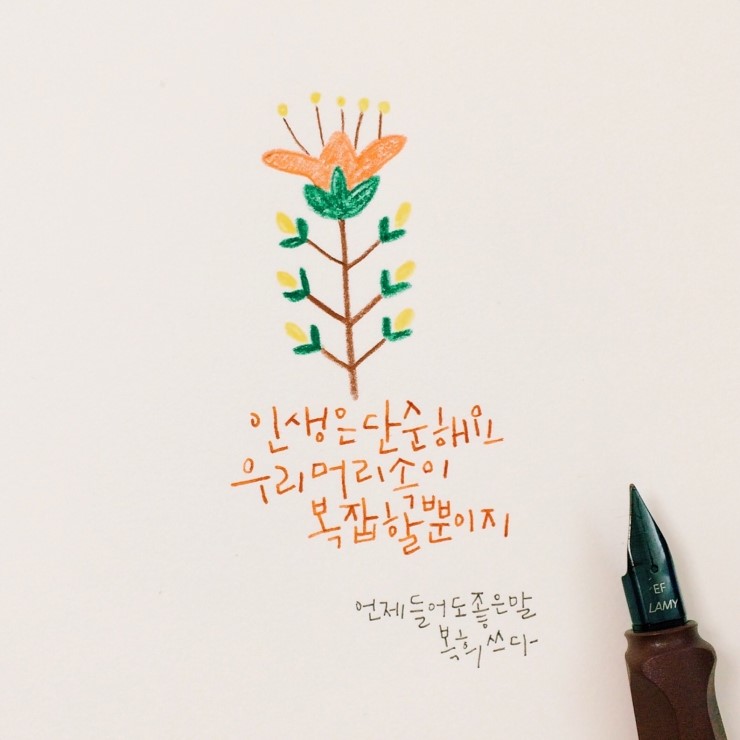 인생은단순해요
우리머리속이
복잡할뿐이지
언제들어도좋은말
복희쓰다-
EF
LAMY